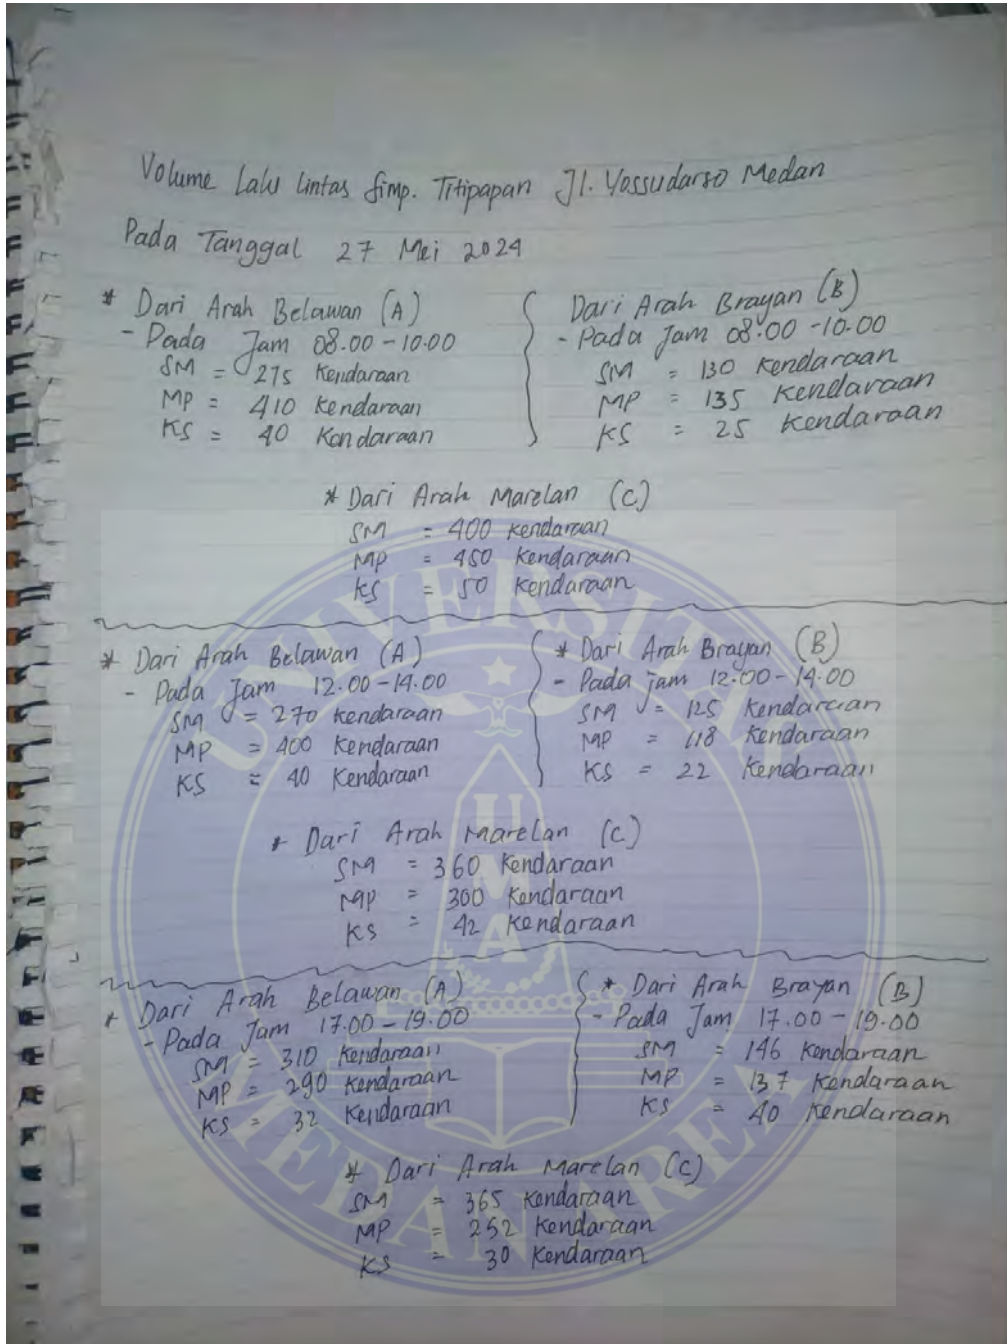 Volume Lalu Lintas Simp. Titipapan Jl. Yossudarso Medan
Pada Tanggal 27 Mei 2024
* Dari Arah Belawan (A)
- Pada Jam 08.00 - 10.00
SM = 275 Kendaraan
MP = 410 Kendaraan
KS = 40 Kendaraan
Dari Arah Brayan (B)
- Pada Jam 08.00 - 10.00
SM = 130 Kendaraan
MP = 135 Kendaraan
KS = 25 Kendaraan
* Dari Arah Marelan (C)
SM = 400 Kendaraan
MP = 450 Kendaraan
KS = 50 Kendaraan
* Dari Arah Belawan (A)
- Pada Jam 12.00 - 14.00
SM = 270 Kendaraan
MP = 400 Kendaraan
KS = 40 Kendaraan
* Dari Arah Brayan (B)
- Pada jam 12.00 - 14.00
SM = 125 Kendaraan
MP = 118 Kendaraan
KS = 22 Kendaraan
* Dari Arah Marelan (C)
SM = 360 Kendaraan
MP = 300 Kendaraan
KS = 42 Kendaraan
* Dari Arah Belawan (A)
- Pada Jam 17.00 - 19.00
SM = 310 Kendaraan
MP = 290 Kendaraan
KS = 32 Kendaraan
* Dari Arah Brayan (B)
- Pada Jam 17.00 - 19.00
SM = 146 Kendaraan
MP = 137 Kendaraan
KS = 40 Kendaraan
* Dari Arah Marelan (C)
SM = 365 Kendaraan
MP = 252 Kendaraan
KS = 30 Kendaraan
UNIVERSITAS MEDAN AREA
UMA